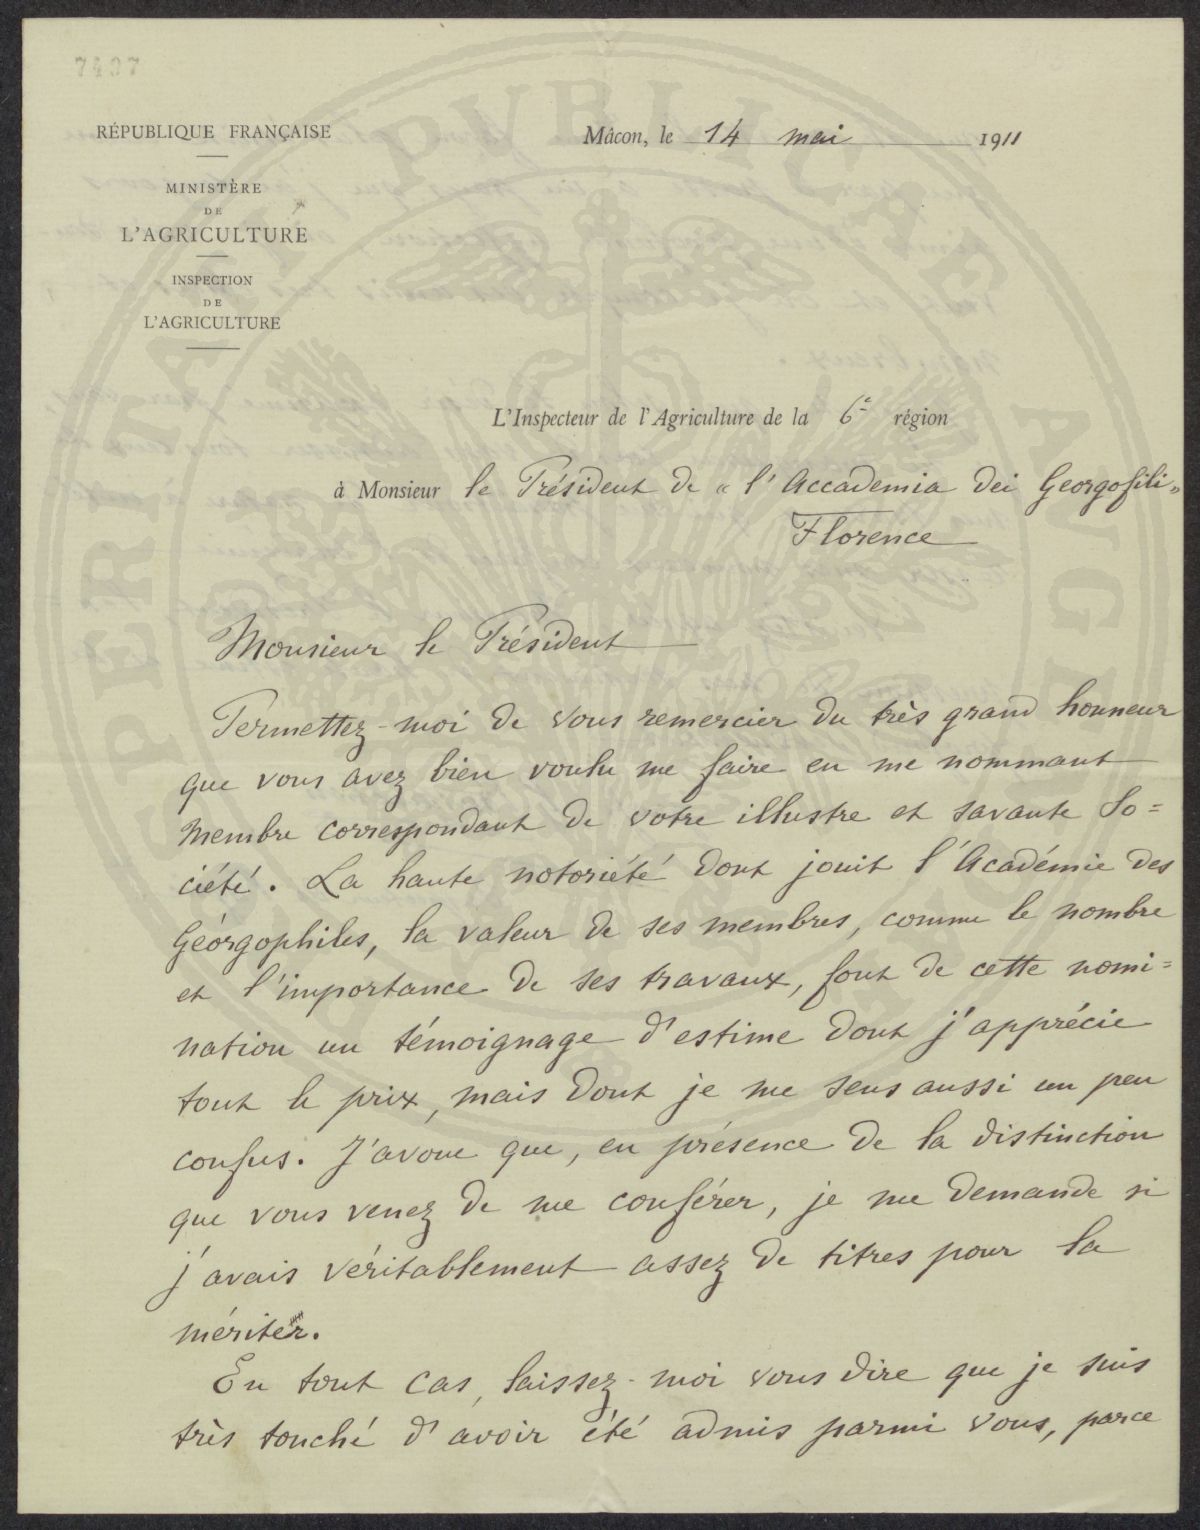 7407
RÉPUBLIQUE FRANÇAISE
MINISTÈRE
DE
L'AGRICULTURE
INSPECTION
DE
L'AGRICULTURE
Mâcon, le 14 mai 1911
L'Inspecteur de l'Agriculture de la 6e région
à Monsieur le Président de « l'Accademia dei Georgofili »
Florence
Monsieur le Président
Permettez-moi de vous remercier du très grand honneur
que vous avez bien voulu me faire en me nommant
membre correspondant de votre illustre et savante So=
ciété. La haute notoriété dont jouit l'Académie des
Géorgophiles, la valeur de ses membres, comme le nombre
et l'importance de ses travaux, font de cette nomi=
nation un témoignage d'estime dont j'apprécie
tout le prix, mais dont je me sens aussi un peu
confus. J'avoue que, en présence de la distinction
que vous venez de me conférer, je me demande si
j'avais véritablement assez de titres pour la
mériter.
En tout cas, laissez-moi vous dire que je suis
très touché d'avoir été admis parmi vous, parce